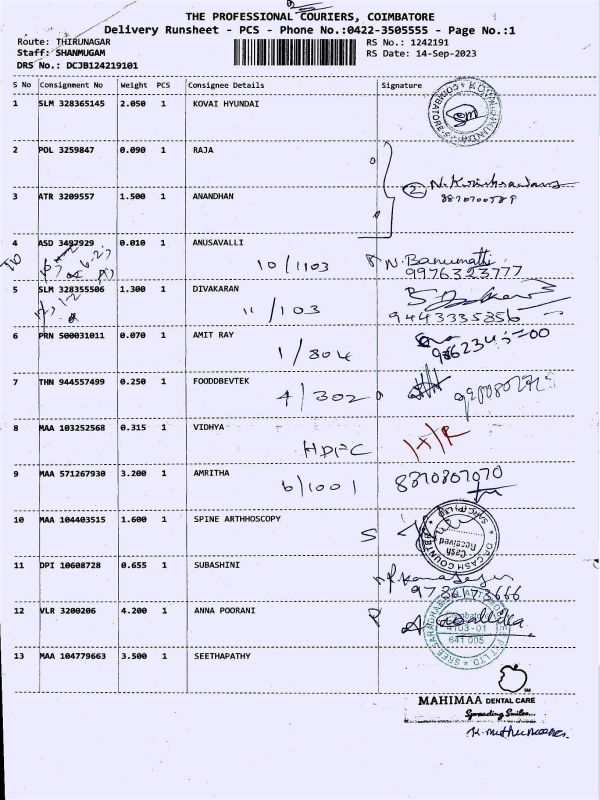 THE PROFESSIONAL COURIERS, COIMBATORE
Delivery Runsheet - PCS - Phone No.:0422-3505555 - Page No.:1
Route: THIRUNAGAR RS No.: 1242191
Staff: SHANMUGAM RS Date: 14-Sep-2023
DRS No.: DCJB124219101
S No Consignment No Weight PCS Consignee Details Signature
1 SLM 328365145 2.050 1 KOVAI HYUNDAI
2 POL 3259847 0.090 1 RAJA
3 ATR 3209557 1.500 1 ANANDHAN
4 ASD 3497929 0.010 1 ANUSAVALLI
10/1103 N. Banumathi
9976323777
5 SLM 328355506 1.300 1 DIVAKARAN
11/103 9443335856
6 PRN 500031011 0.070 1 AMIT RAY
1/804
7 THN 944557499 0.250 1 FOODDBEVTEK
4/302
8 MAA 103252568 0.315 1 VIDHYA
HDFC
9 MAA 571267930 3.200 1 AMRITHA
6/1001 8870807070
10 MAA 104403515 1.600 1 SPINE ARTHHOSCOPY
S Cash Received
CASH COUNTER
11 DPI 10608728 0.655 1 SUBASHINI
12 VLR 3200206 4.200 1 ANNA POORANI
641 005
13 MAA 104779663 3.500 1 SEETHAPATHY
MAHIMAA DENTAL CARE
Spreading Smiles...